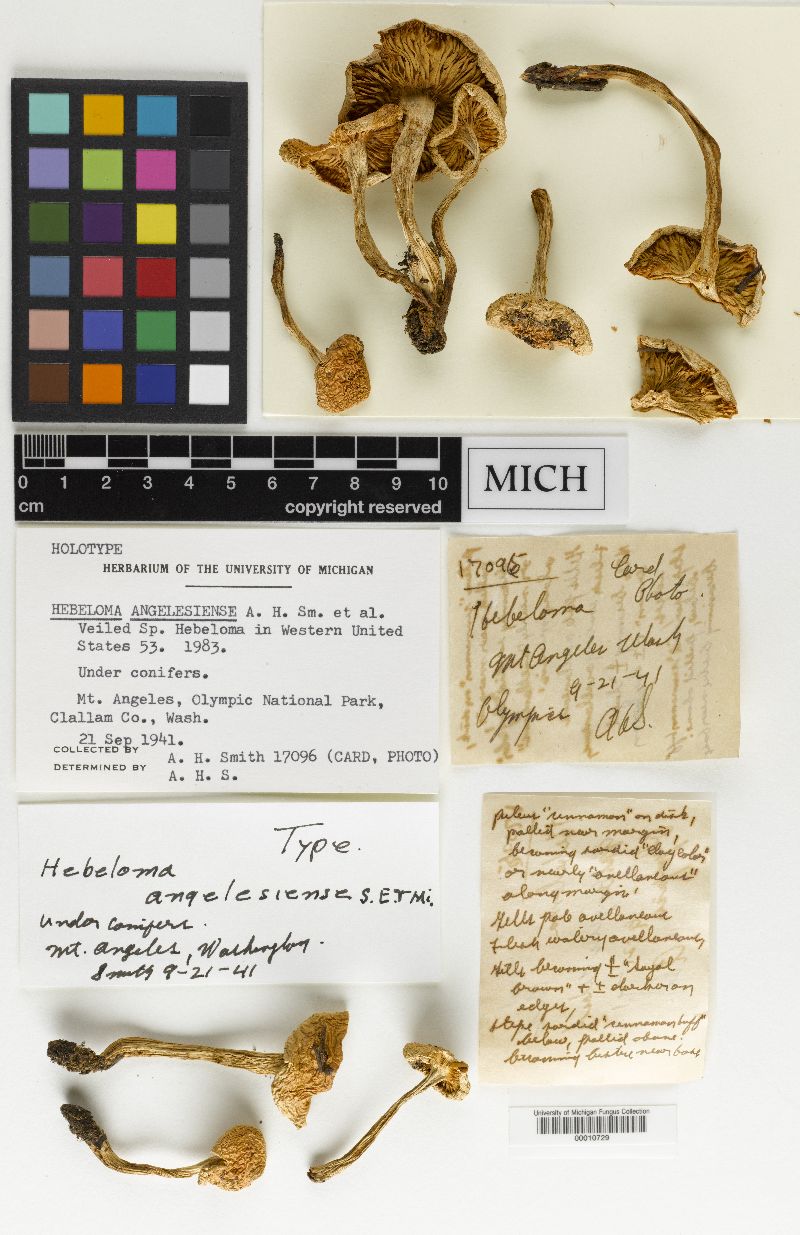 0 1 2 3 4 5 6 7 8 9 10
cm
copyright reserved
MICH
HOLOTYPE
HERBARIUM OF THE UNIVERSITY OF MICHIGAN
HEBELOMA ANGELESIENSE A. H. Sm. et al.
Veiled Sp. Hebeloma in Western United
States 53. 1983.
Under conifers.
Mt. Angeles, Olympic National Park,
Clallam Co., Wash.
21 Sep 1941.
COLLECTED BY A. H. Smith 17096 (CARD, PHOTO)
DETERMINED BY A. H. S.
17096
Card
Photo.
Hebeloma
Mt Angeles Wash
9-21-41
Olympic AHS.
Type.
Hebeloma
angelesiense S. E & Mi.
Under conifers.
Mt. Angeles, Washington.
Smith 9-21-41
pileus "cinnamon" on disk,
pallid near margin,
becoming sordid "clay color"
or nearly "avellaneous"
along margin.
Gills pale avellaneous
Flesh watery avellaneous
Gills becoming ± "sayal
brown" + ± darker on
edges,
stipe sordid "cinnamon buff"
below, pallid above
becoming bister near base
University of Michigan Fungus Collection
00010729